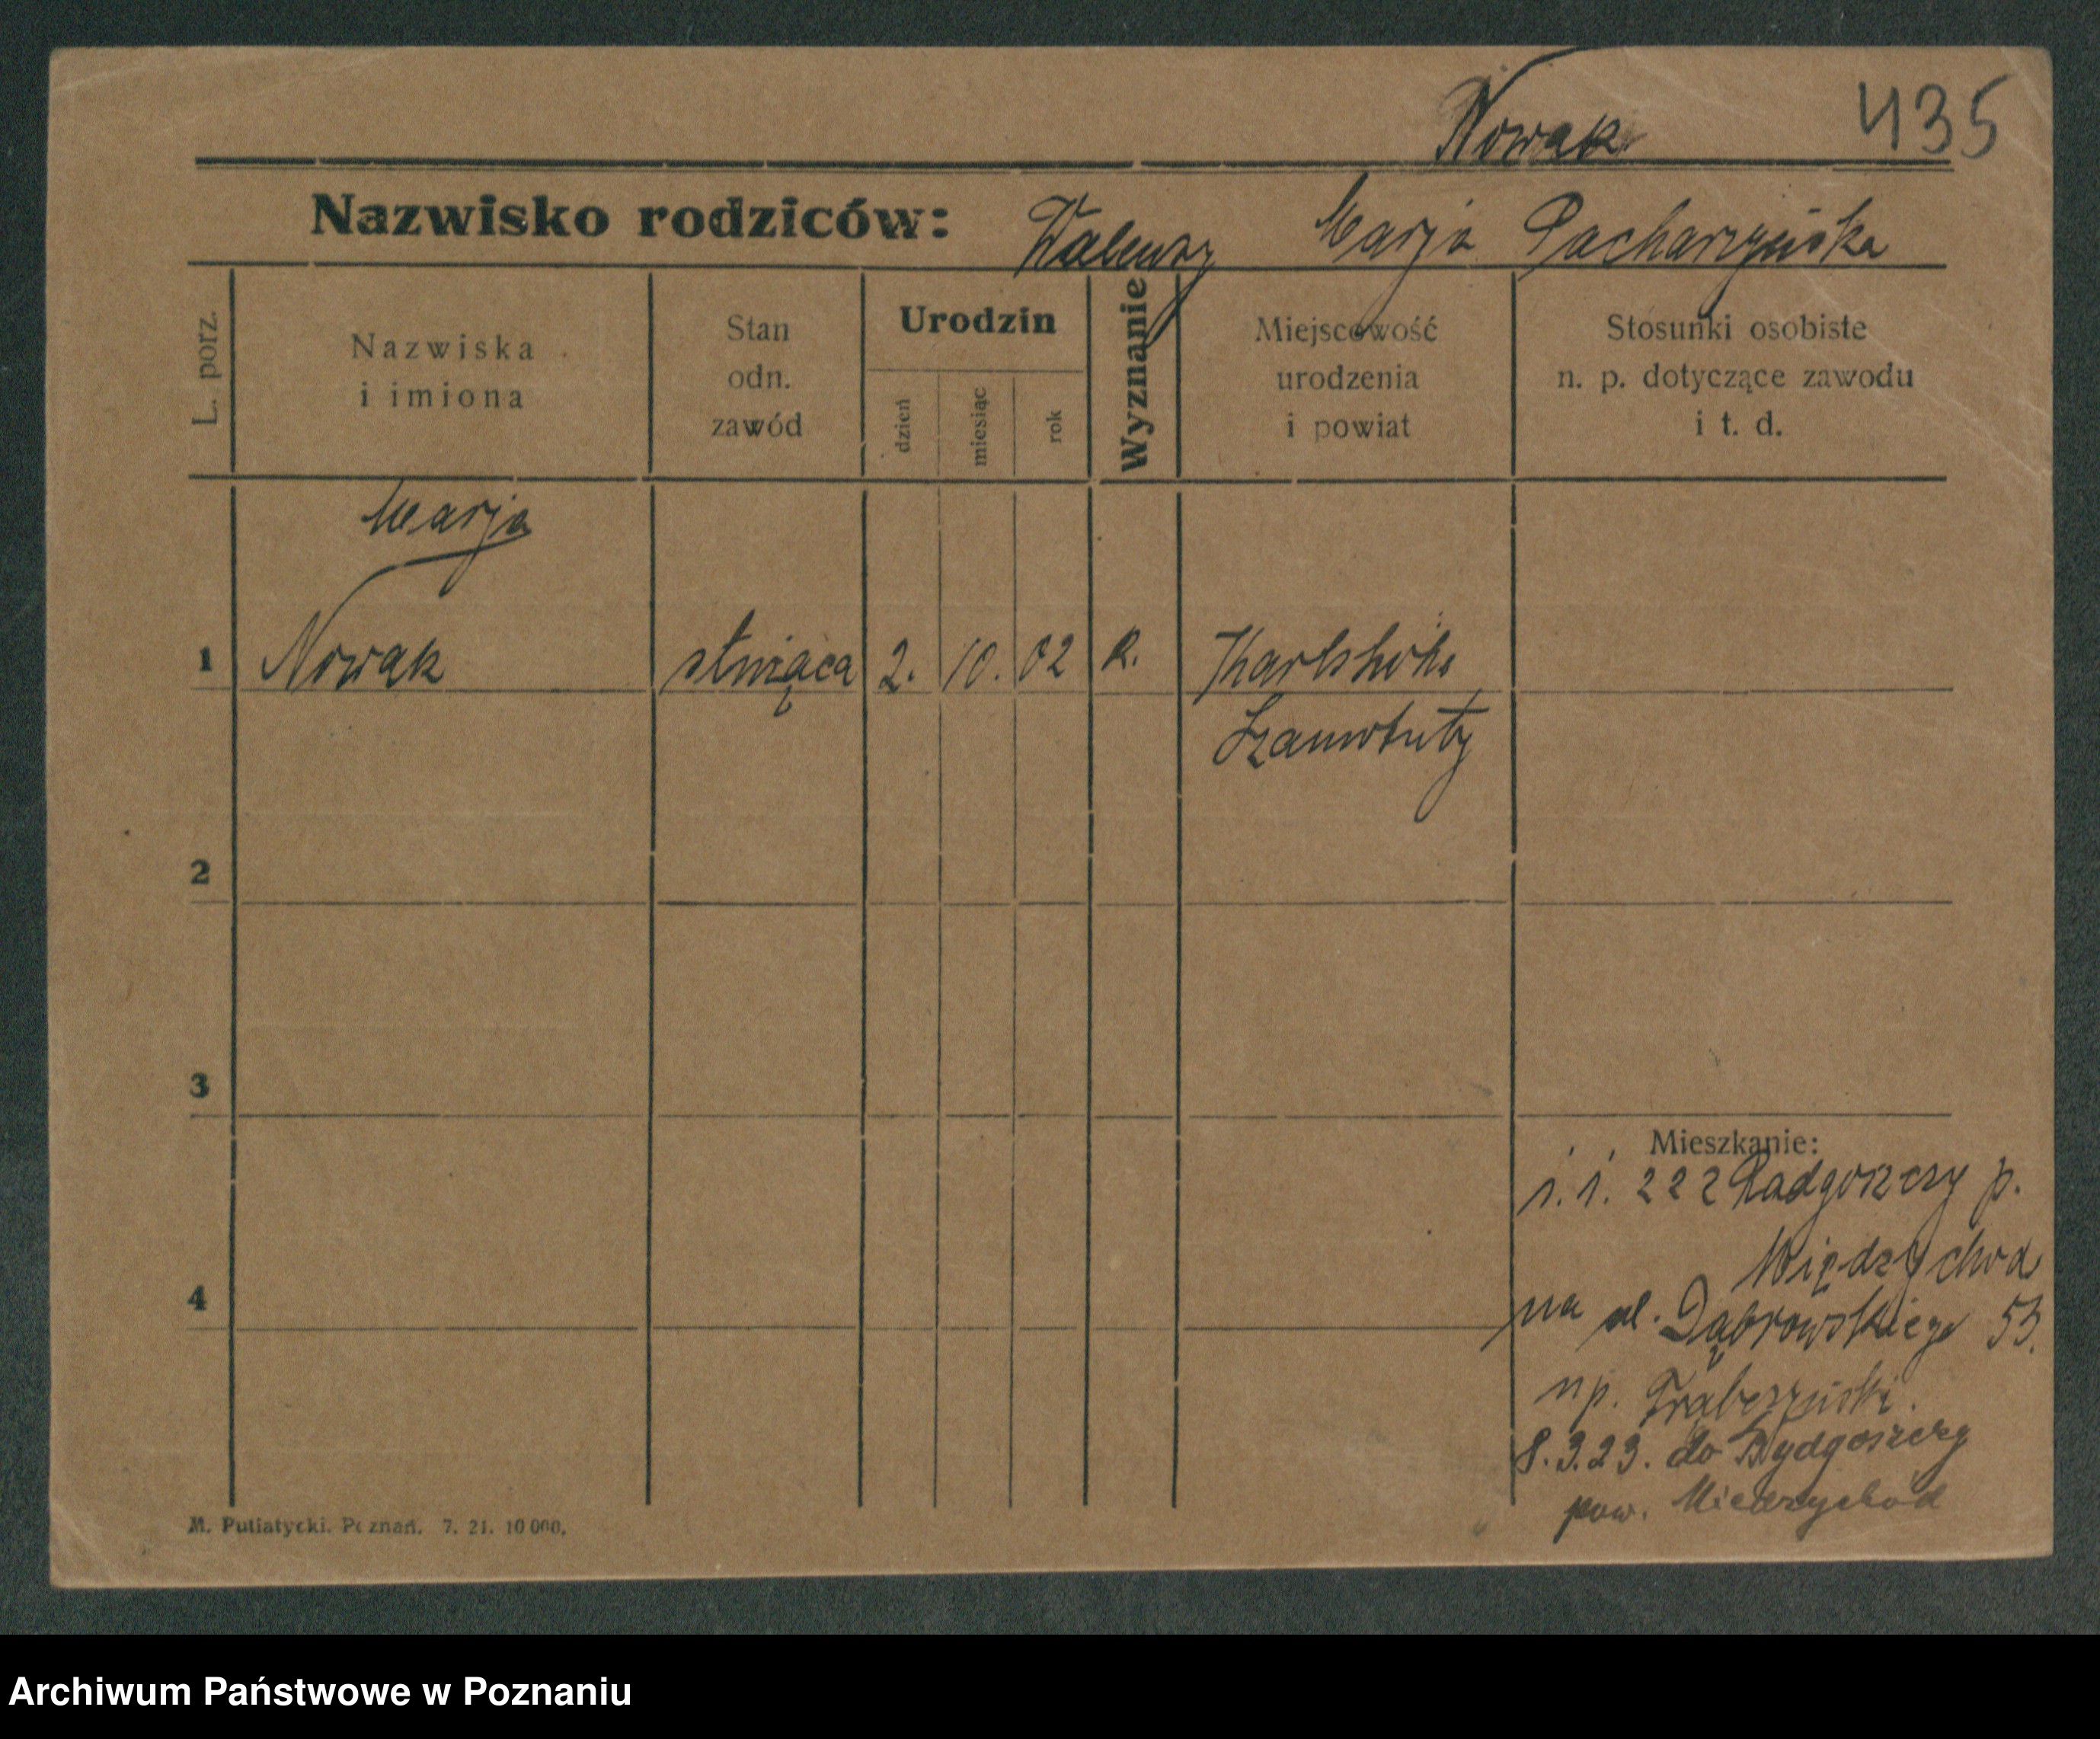 Nowak 435
Nazwisko rodziców: Walenty Marja Pacharzyńska
L. porz.
Nazwiska
i imiona
Stan
odn.
zawód
Urodzin
dzień
miesiąc
rok
Wyznanie
Miejscowość
urodzenia
i powiat
Stosunki osobiste
n. p. dotyczące zawodu
i t. d.
Marja
1 Nowak służąca 2. 10. 02 R. Karlshöhe
Szamotuły
2
3
Mieszkanie:
1. 1. 222 Radgoszczy p.
Międzychod
4
na ul. Dąbrowskiego 53.
np.
8.3.23. do Bydgoszczy
pow. Miedzychód
M. Putiatycki. Poznań. 7. 21. 10 000.
Archiwum Państwowe w Poznaniu